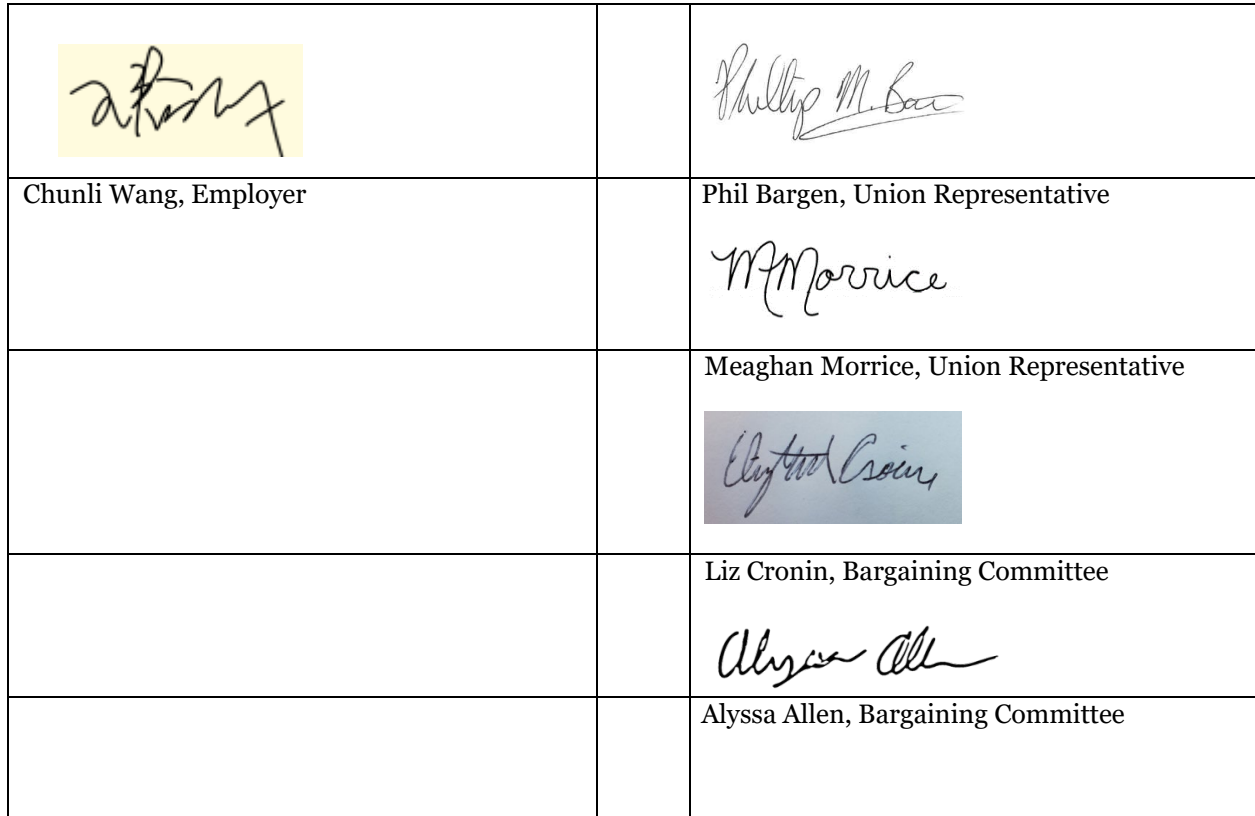 Phillip M. Bar
Chunli Wang, Employer
Phil Bargen, Union Representative
MMorrice
Meaghan Morrice, Union Representative
Liz Cronin, Bargaining Committee
Alyssa Allen
Alyssa Allen, Bargaining Committee